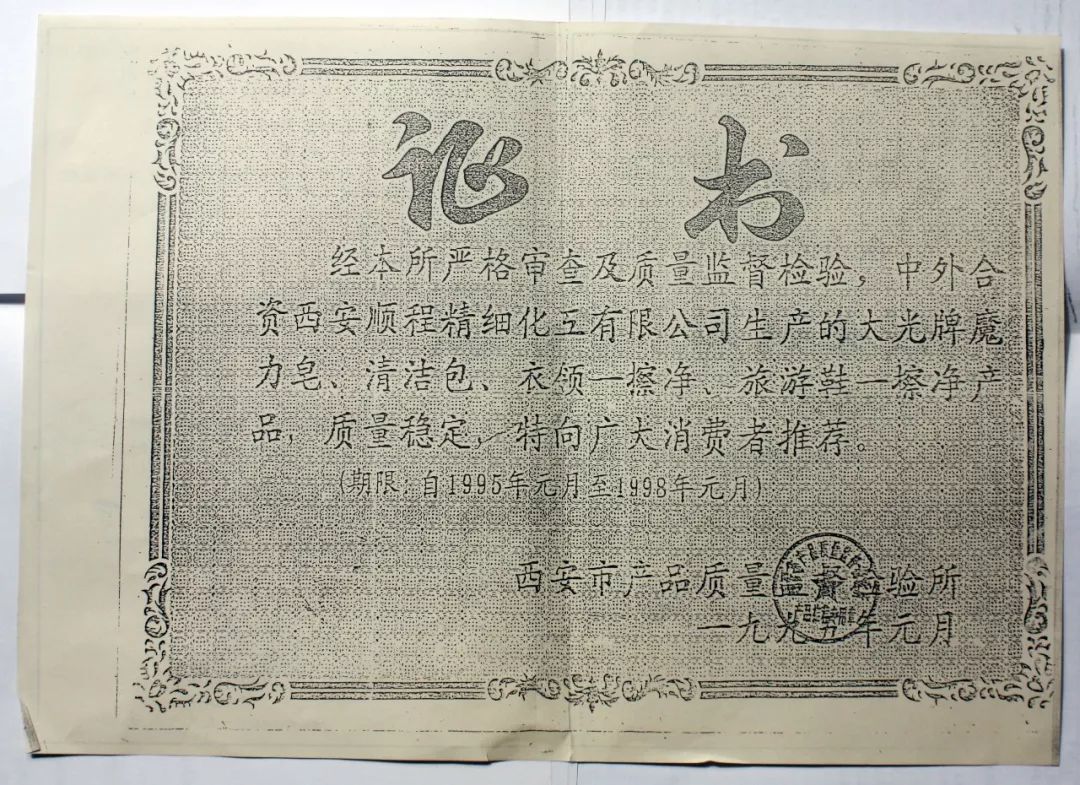 证书
经本所严格审查及质量监督检验，中外合
资西安顺程精细化工有限公司生产的大光牌魔
力皂、清洁包、衣领一擦净、旅游鞋一擦净产
品，质量稳定，特向广大消费者推荐。
(期限：自1995年元月至1998年元月)
西安市产品质量监督检验所
一九九五年元月